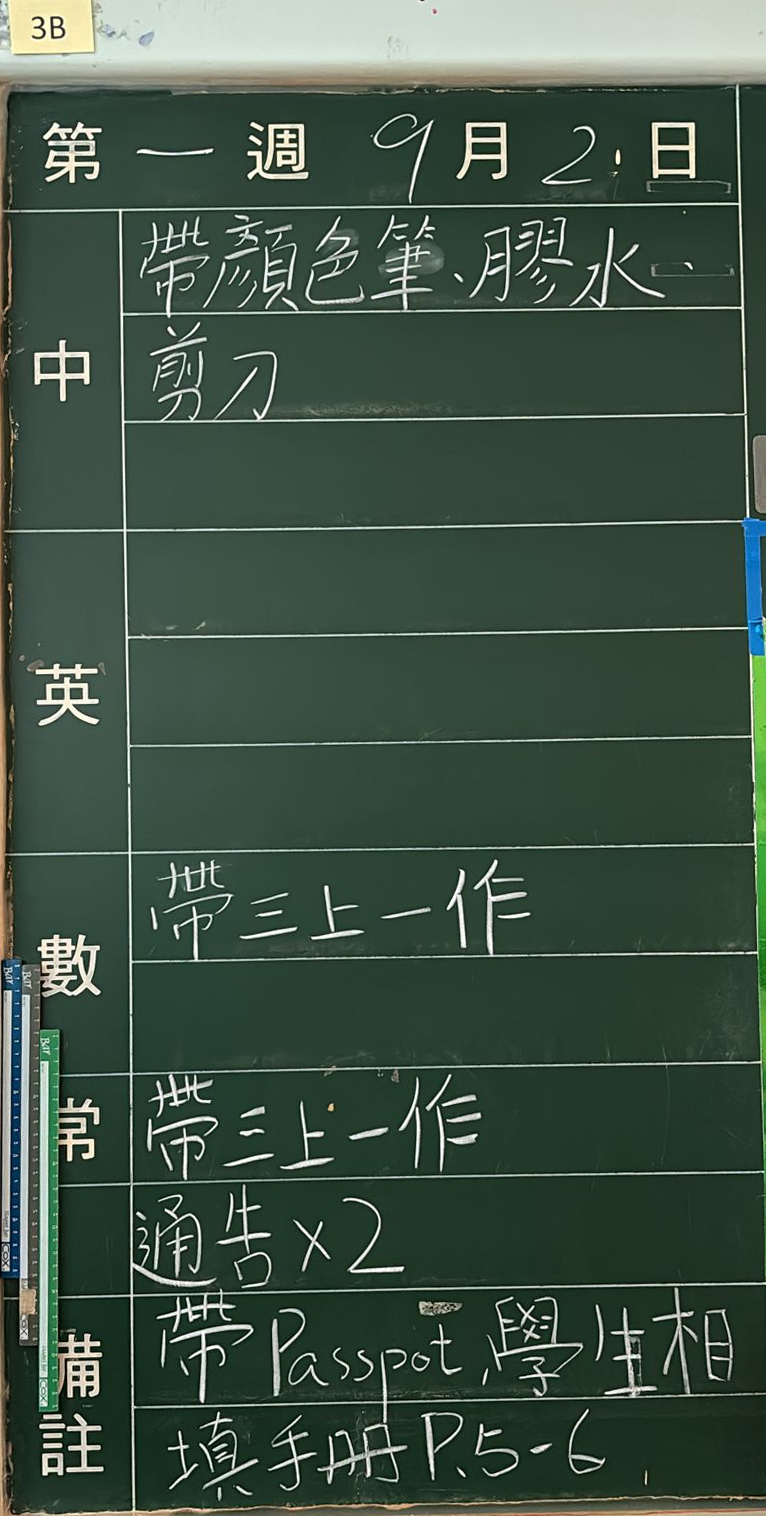 3B
第一週 9月2日
中
帶顏色筆、膠水、
剪刀
英
數
帶三上一作
常
帶三上一作
通告×2
備註
帶Passpot,學生相
填手冊P.5-6